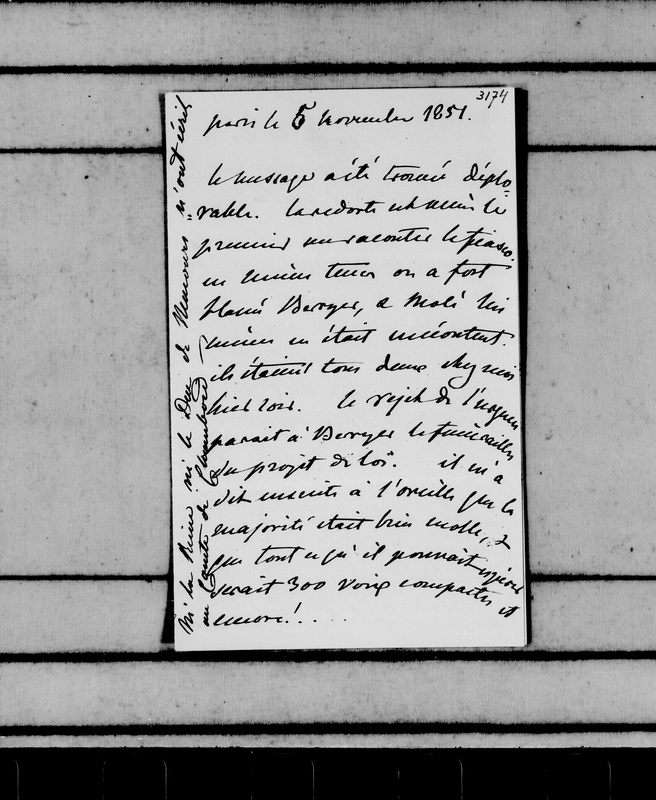 3174
paris le 5 novembre 1851.
le message a été trouvé déplo-
rable. laredorte est venu le
premier me raconter le fiasco.
en même tems on a fort
blamé Berryer, & Molé lui
même en était mécontent.
ils étaient tous deux chez moi
hier soir. le rejet de l'urgence
parait à Berryer les funérailles
du projet de loi. il m'a
dit ensuite à l'oreille que la
majorité était bien molle, &
que tout ce qu'il pouvait espérer
serait 300 voix compactes et
encore! . . . .
Ni la Reine ni le Duc de Nemours n'ont écrit
au Comte de Chambord